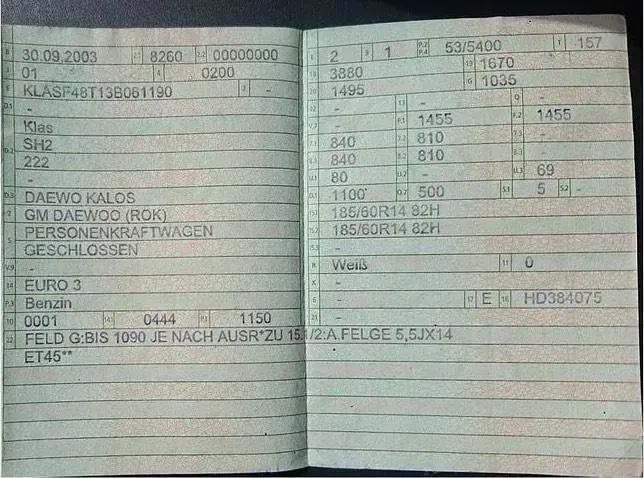 B 30.09.2003 2.1 8260 2.2 00000000
J 01 4 0200
E KLASF48T13B061190 3 -
D.1 -
Klas
D.2 SH2
222
-
D.3 DAEWO KALOS
2 GM DAEWOO (ROK)
5 PERSONENKRAFTWAGEN
GESCHLOSSEN
V.9 -
14 EURO 3
P.3 Benzin
10 0001 14.1 0444 P.1 1150
22 FELD G:BIS 1090 JE NACH AUSR*ZU 15.1/2:A.FELGE 5,5JX14
ET45**
L 2 9 1 P.2 P.4 53/5400 T 157
18 3880 19 1670
20 1495 G 1035
12 - 13 - Q -
V.7 - F.1 1455 F.2 1455
7.1 840 7.2 810 7.3 -
8.1 840 8.2 810 8.3 -
U.1 80 U.2 - U.3 69
O.1 1100 O.2 500 S.1 5 S.2 -
15.1 185/60R14 82H
15.2 185/60R14 82H
15.3 -
R Weiß 11 0
K -
6 - 17 E 16 HD384075
21 -